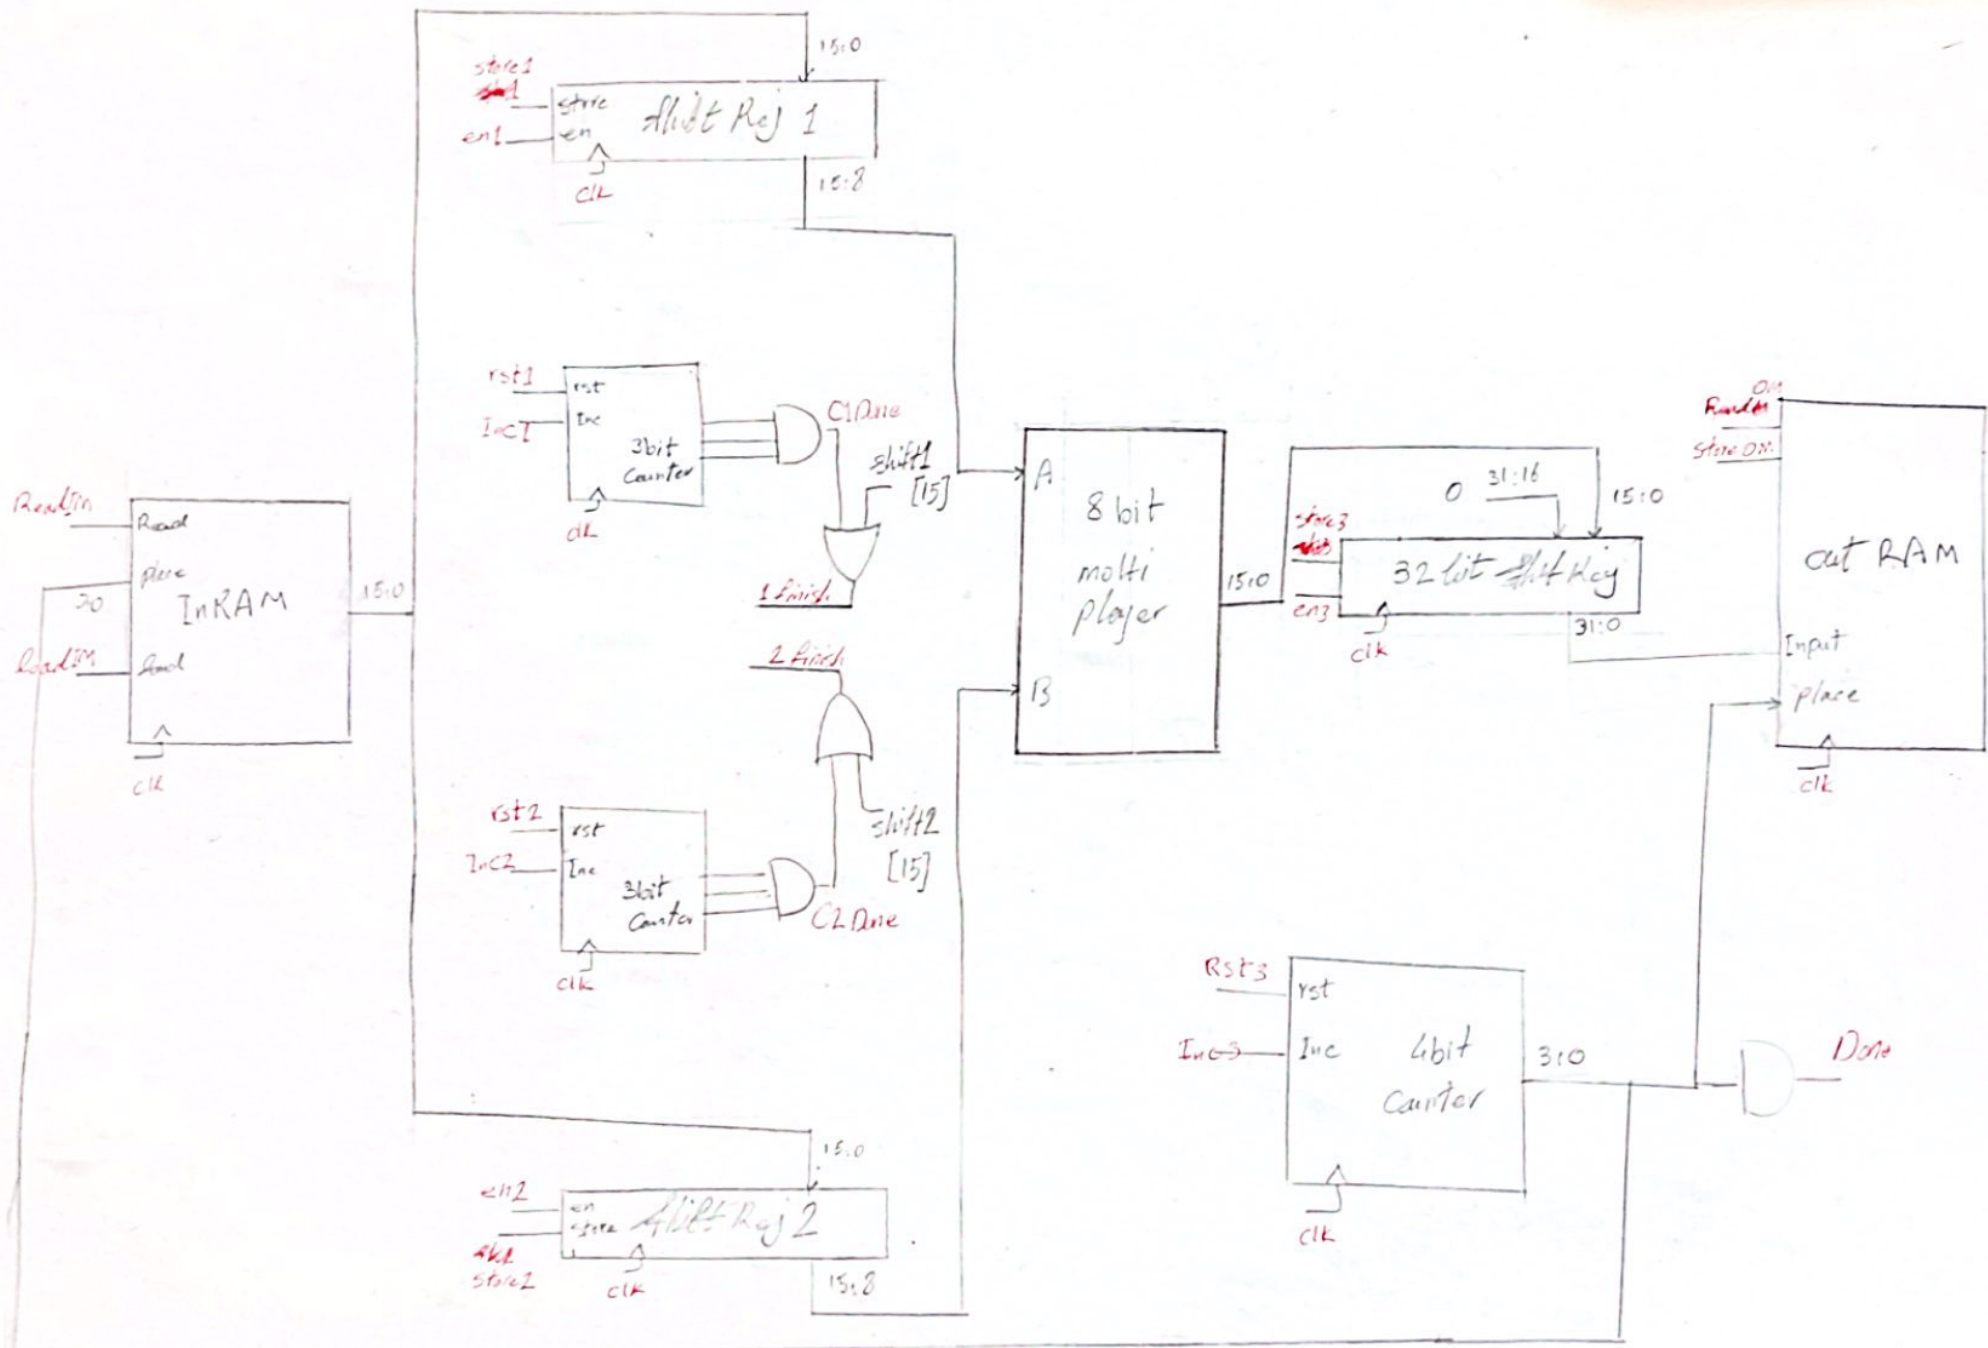 15:0
store1
store
en1
en
Shift Rej 1
clk
15:8
rst1
rst
Inc1
Inc
3bit
Counter
clk
C1Done
shift1
[15]
1 finish
ReadIn
Read
place
InRAM
15:0
loadIM
load
clk
2 finish
rst2
rst
Inc2
Inc
3bit
Counter
clk
C2 Done
shift2
[15]
A
8 bit
molti
player
B
15:0
0
31:16
15:0
store3
32 bit Shift Rej
en3
clk
31:0
OM
Store OM
out RAM
Input
place
clk
Rst3
rst
Inc3
Inc
4bit
Counter
3:0
clk
Done
15:0
en2
en
store
Shift Rej 2
store2
clk
15:8